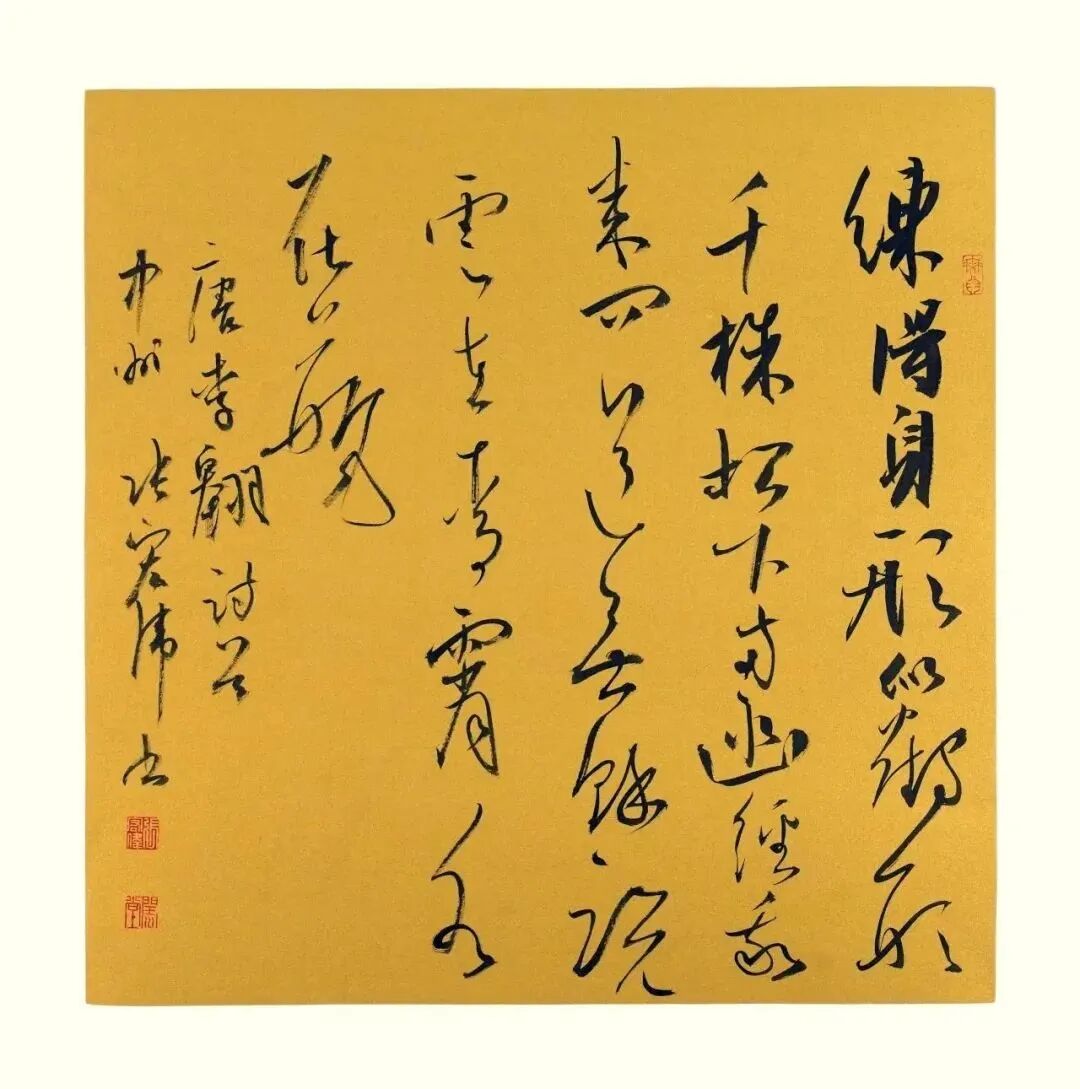 練得身形似鶴形
千株松下兩函經我
來問道無餘說
雲在青霄水
在瓶
唐李翱詩
中州 張宏偉書